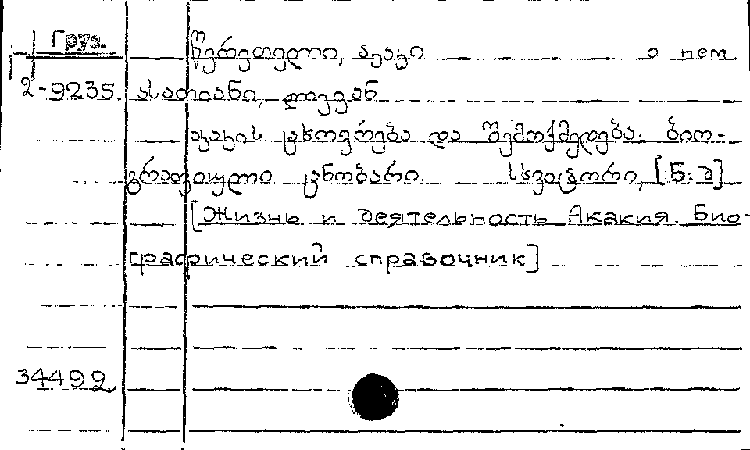 Груз.
წერეთელი, აკაკი о нем
2-9235. ასათიანი, ლევან
აკაკის ცხოვრება და შემოქმედება. ბიო-
გრაფიული ცნობარი. [ბ.თ]
[Жизнь и деятельность Акакия. Био-
графический справочник]
34492